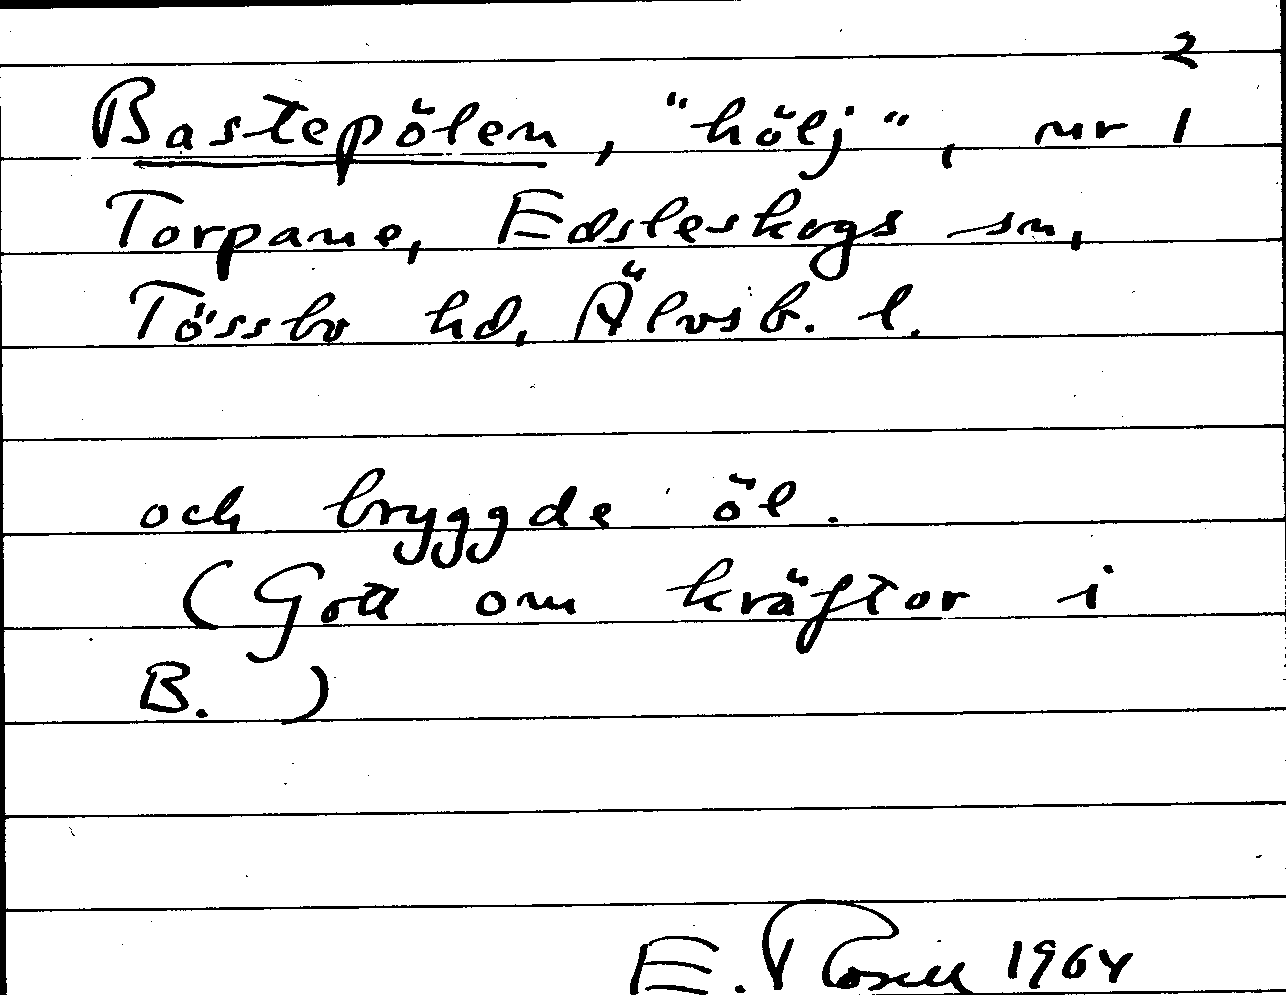 2
Bastepölen, "hölj", nr 1
Torpane, Edsleskogs sn,
Tössbo hd, Älvsb. l.
och bryggde öl.
(Gott om kräftor i
B. )
E. Rosell 1964